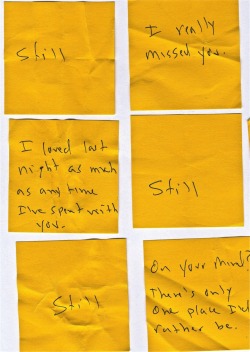 Still
I really
missed you.
I loved last
night as much
as any time
I've spent with
you.
Still
Still
On your mind?
There's only
one place I'd
rather be.